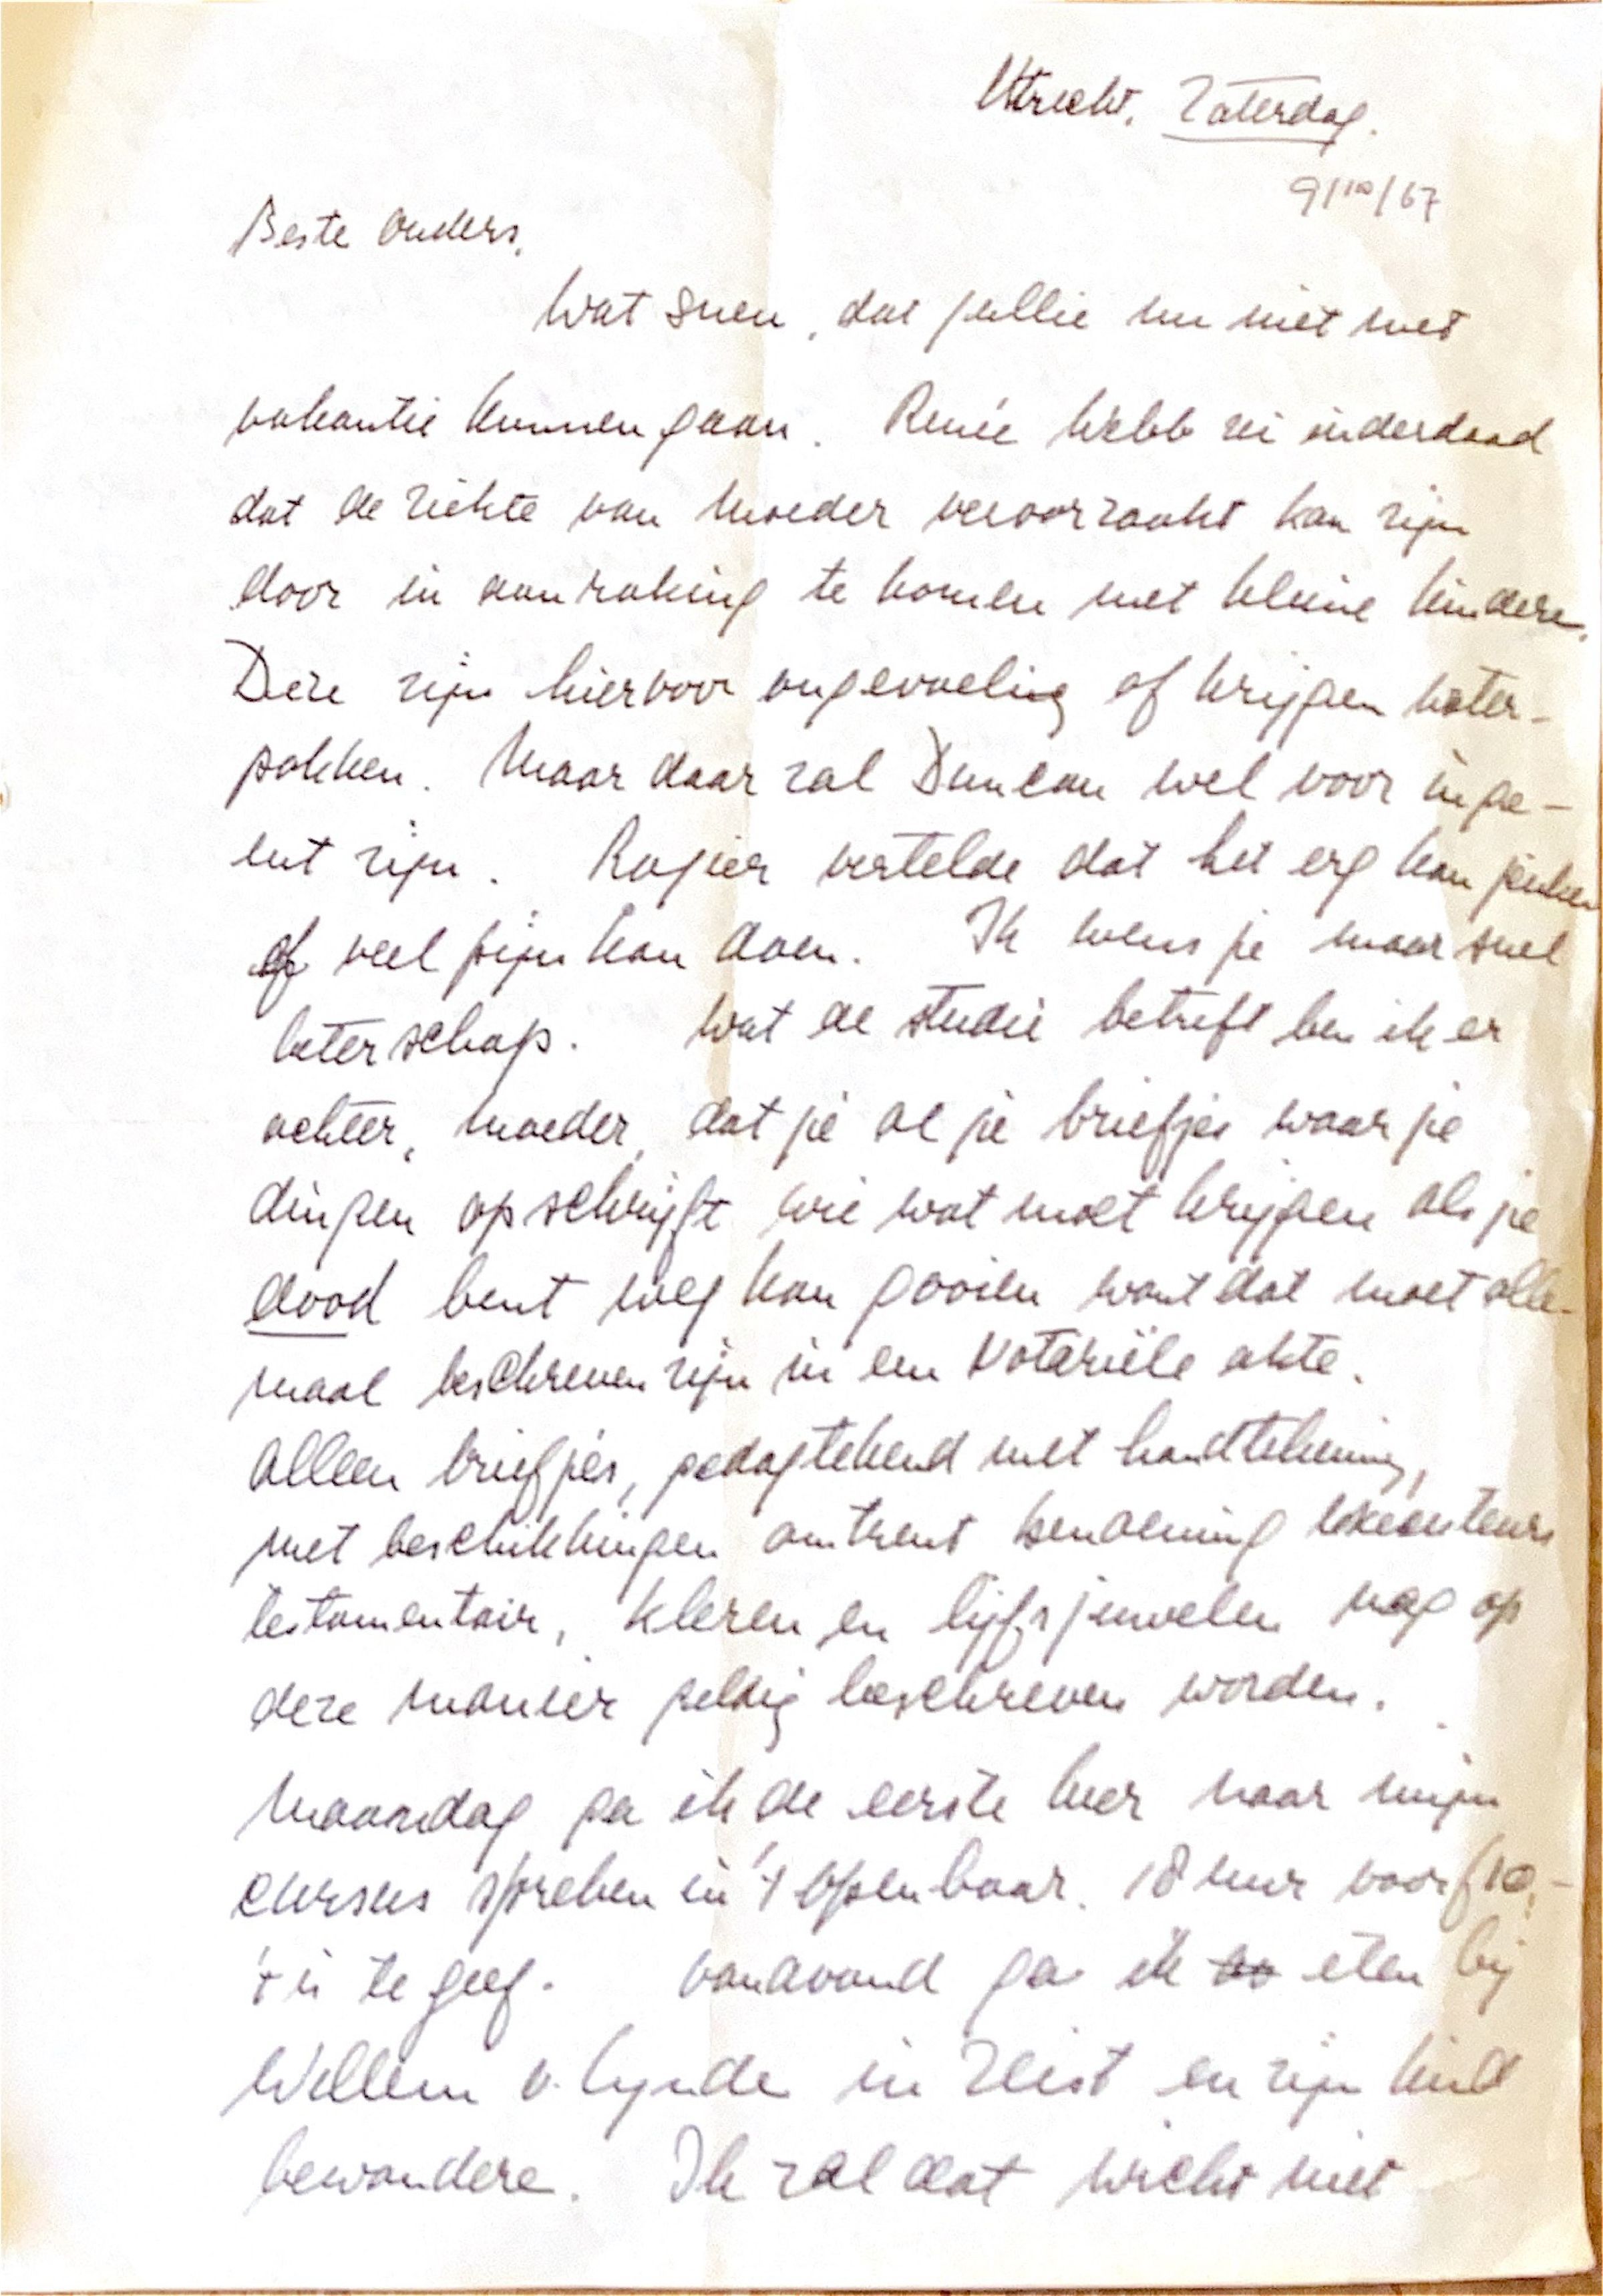 Utrecht, Zaterdag.
9/10/67
Beste Ouders,
Wat sneu, dat jullie nu niet met
vakantie kunnen gaan. Renée Webb zei inderdaad
dat de ziekte van Moeder veroorzaakt kan zijn
door in aanraking te komen met kleine kinderen.
Deze zijn hiervoor ongevoelig of krijgen water-
pokken. Maar daar zal Duncan wel voor inge-
ent zijn. Rogier vertelde dat het erg kan jeuken
of veel pijn kan doen. Ik wens je maar snel
beterschap. Wat de studie betreft ben ik er
achter, Moeder, dat je al je briefjes waar je
dingen opschrijft wie wat moet krijgen als je
dood bent weg kan gooien want dat moet alle-
maal beschreven zijn in een Notariële akte.
Alleen briefjes, gedagtekend met handtekening,
met beschikkingen omtrent benoeming executeurs
testamentair, kleren en lijfsjuwelen mag op
deze manier geldig beschreven worden.
Maandag ga ik de eerste keer naar mijn
cursus spreken in 't openbaar. 18 uur voor f 10,-
't is te geef. Vanavond ga ik eten bij
Willem v. Lynde in Zeist en zijn kind
bewonderen. Ik zal dat wicht niet